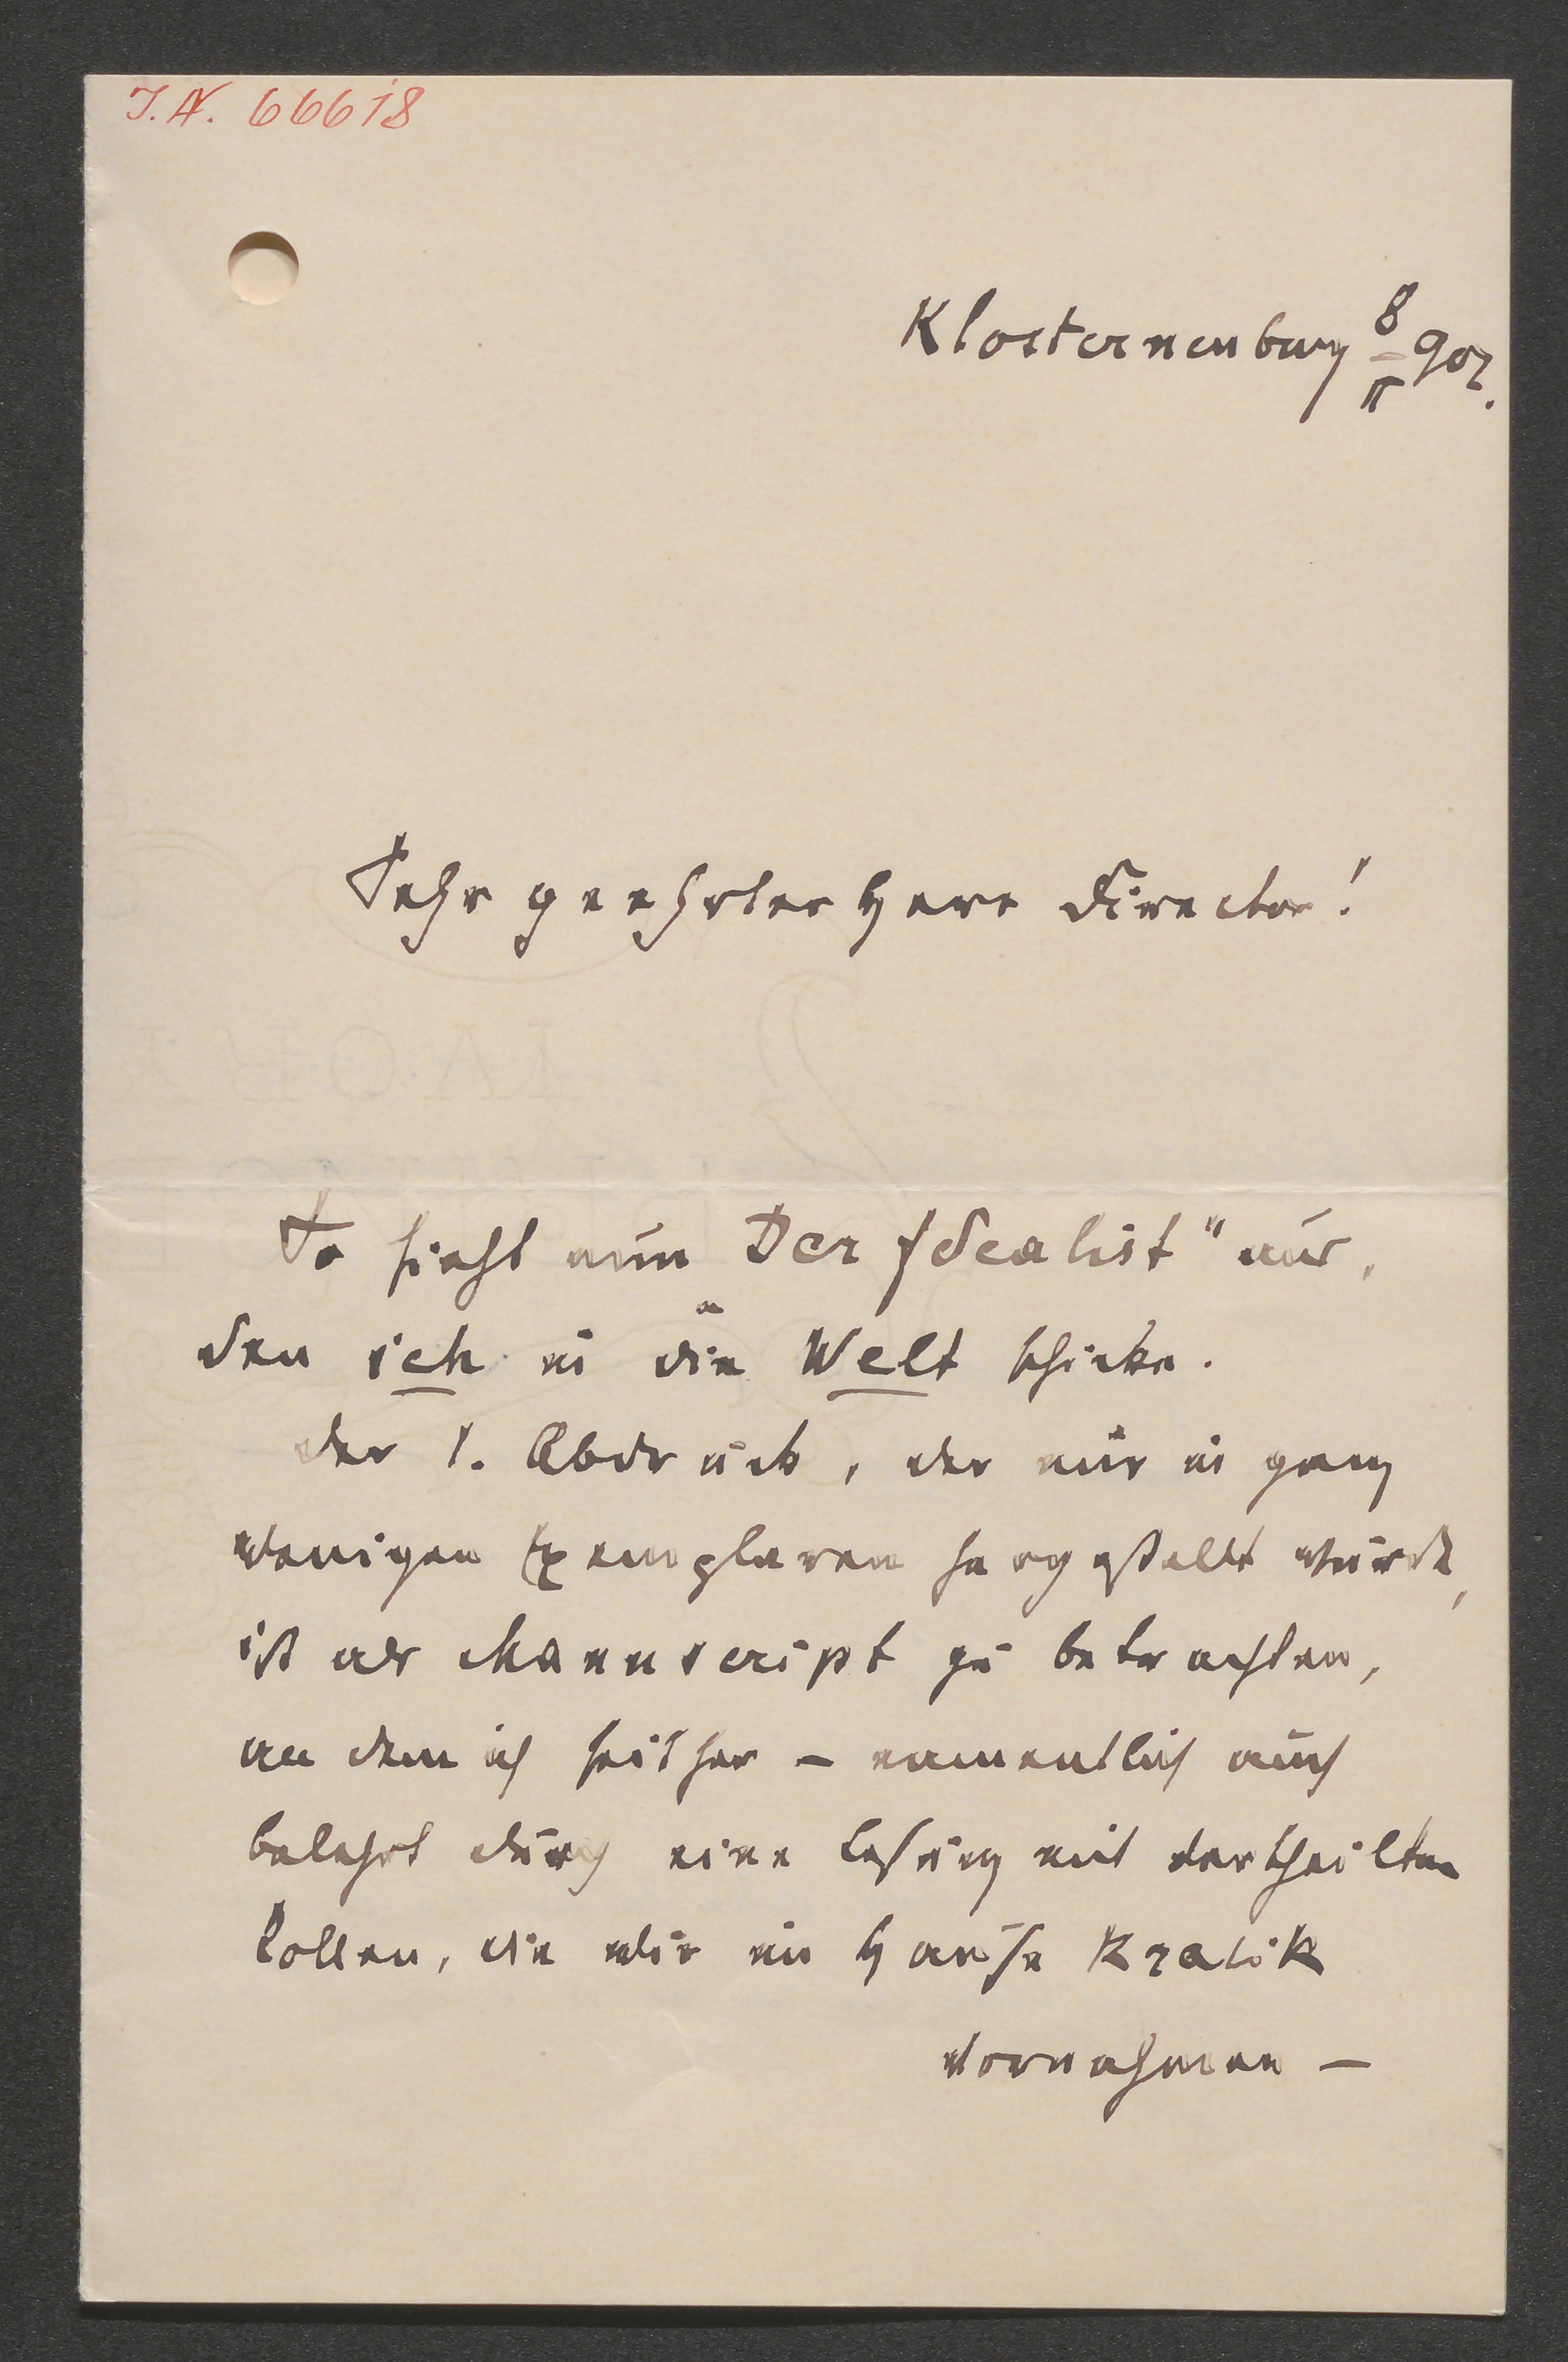 I.N. 66618
Klosterneuburg 8/II 902.
Sehr geehrter Herr Director!
So sieht nun "Der Idealist" aus,
den ich in die Welt schicke.
Der 1. Abdruck, der nur in ganz
wenigen Exemplaren hergestellt wurde,
ist als Manuscript zu betrachten,
an dem ich seither – namentlich auch
belehrt durch eine Lesung mit vertheilten
Rollen, die wir im Hause Kralik
vornahmen –